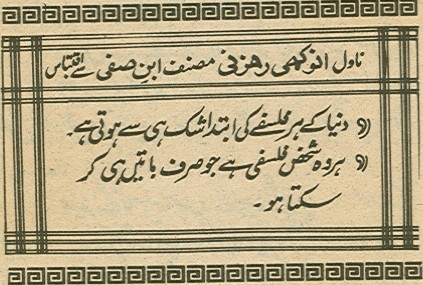 ناول انوکھی رہزنی مصنف ابن صفی سے اقتباس
(۱) دنیا کے ہر فلسفے کی ابتدا شک ہی سے ہوتی ہے۔
(۲) ہر وہ شخص فلسفی ہے جو صرف باتیں ہی کر
سکتا ہو۔